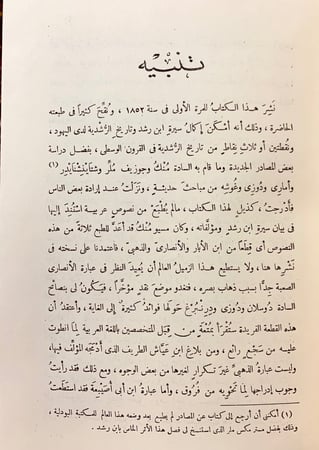 تنبيه
نُشِرَ هذا الكتابُ للمرة الأولى فى سنة ١٨٥٢ ، ونُقِّحَ كثيراً فى طبعته
الحاضرة ، وذلك أنه أمكنَ إكمالُ سيرةِ ابن رشد وتاريخِ الرُّشدية لدى اليهود ،
ونقطتين أو ثلاثِ نِقاطٍ من تاريخ الرُّشدية فى القرون الوسطى ، بفضل دراسة
بعض المصادر الجديدة وما قام به السادة مُنْك وجوزيف مُلِّر وشتاينشنايدر (١)
وأمارى ودُوزِى وغُوشِه من مباحثَ حديثةٍ ، ونزلتُ عند إرادة بعض الناس
فأدرجتُ ، كذيلٍ لهذا الكتاب ، مالم يُطبَع من نصوص عربية استُنِد إليها
فى بيان سيرةِ ابن رشدٍ ومؤلَّفاته ، وكان مسيو مُنْك قد أعدَّ للطبع ثلاثةً من هذه
النصوص أى قِطَعاً من ابن الأبَّار والأنصارىّ والذهبىّ ، فاعتمدنا على نسخته فى
نَشْرِها هنا ، ولا يستطيع هذا الزميلُ العالم أن يُعيدَ النظر فى عبارة الأنصارى
الصعبة جِدًّا بسبب ذهاب بصره ، فتغدو موضعَ نقدٍ مؤخَّراً ، فيكون لى بنصائح
السادة دُوسلان ودُوزى ودِرِنْبُرغ حولها فوائدُ كثيرةٌ إلى الغاية ، وأعتقدُ أن
هذه القطعة الفريدة ستُقْرأ بمُتعةٍ من قِبَلِ المتخصصين باللغة العربية لِما انطوت
عليه من سَجْعٍ رائع ، ومن بلاغِ ابن عَيَّاش الطريف الذى أدمجه المؤلِّف فيها ،
وليست عبارة الذهبىِّ غيرَ تكرار لغيرها من بعض الوجوه ، ومع ذلك فقد رأيتُ
وجوبَ إدراجها لِما تحتويه من فُروق ، وأما عبارة ابن أبى أُصَيْبِعة فقد استطعتُ
(١) أمكننى أن أرجع إلى كتاب عن المصادر لم يطبع بعد وضعه هذا العالم للمكتبة البودلية ،
وذلك بفضل مستر مكس مُلر الذى استنسخ لى فصل هذا الأثر الماس بابن رشد .